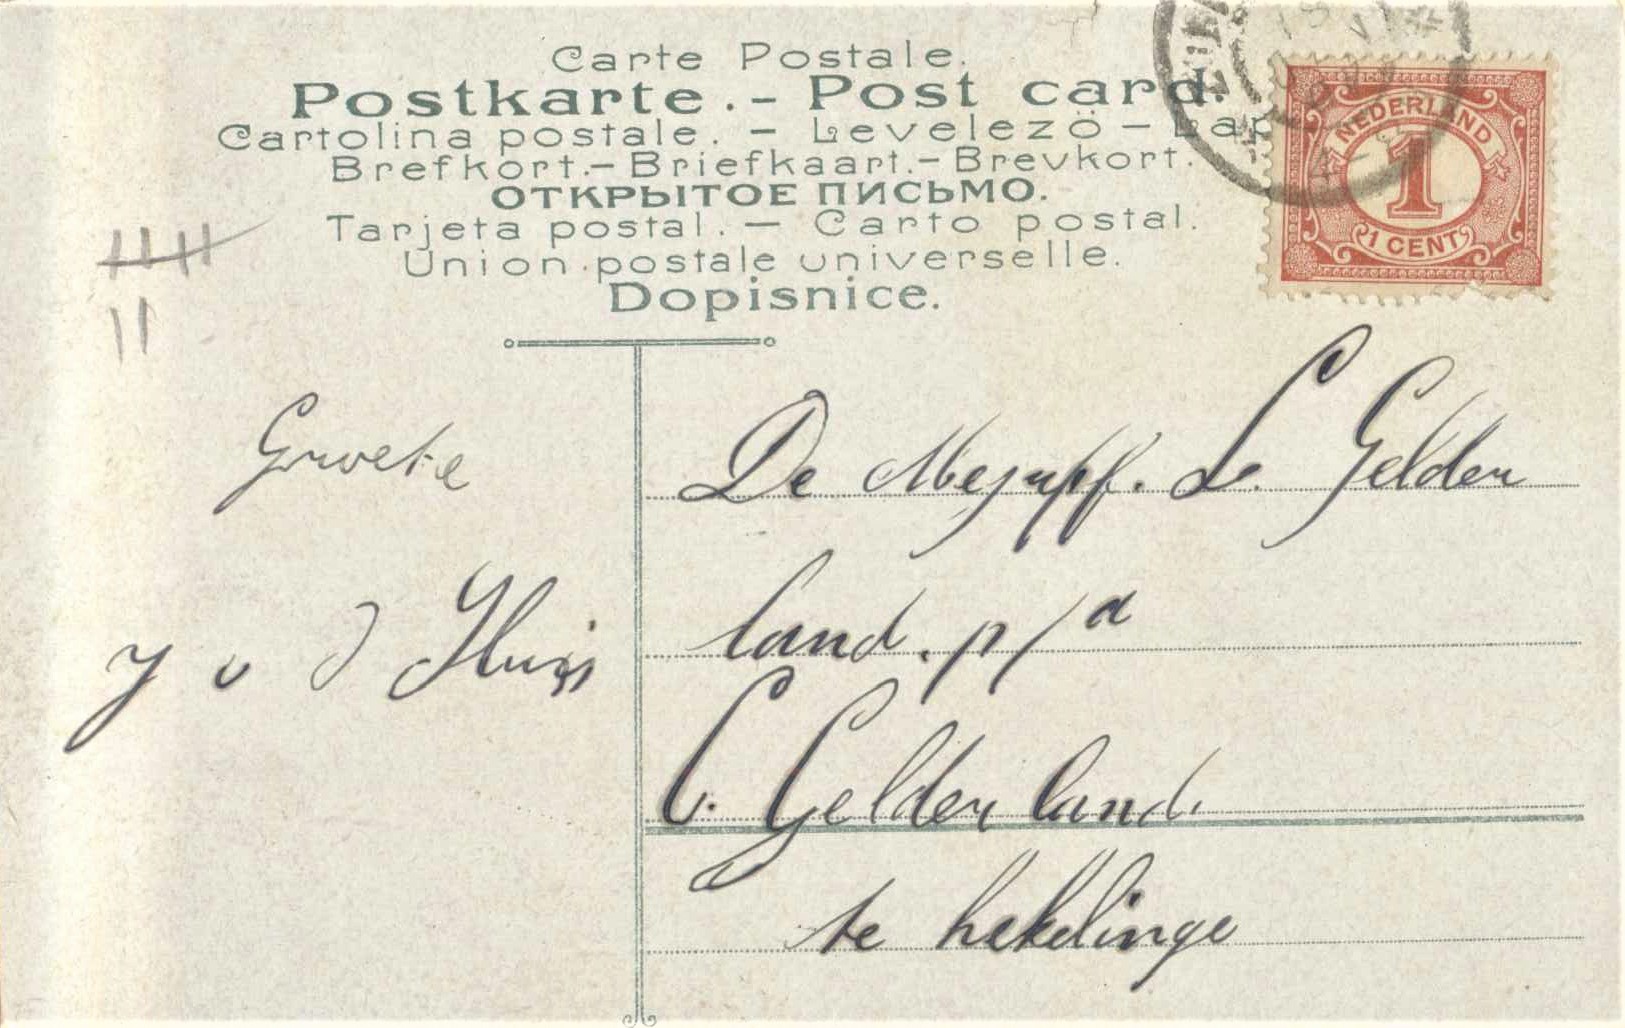 Carte Postale.
Postkarte. - Post card.
Cartolina postale. - Levelezö -
Brefkort. - Briefkaart. - Brevkort.
ОТКРЫТОЕ ПИСЬМО.
Tarjeta postal. - Carto postal.
Union postale universelle.
Dopisnice.
NEDERLAND
1
1 CENT
Groete
De Mejuff. L. Gelder
land. p/a
C. Gelderland.
te hekelinge